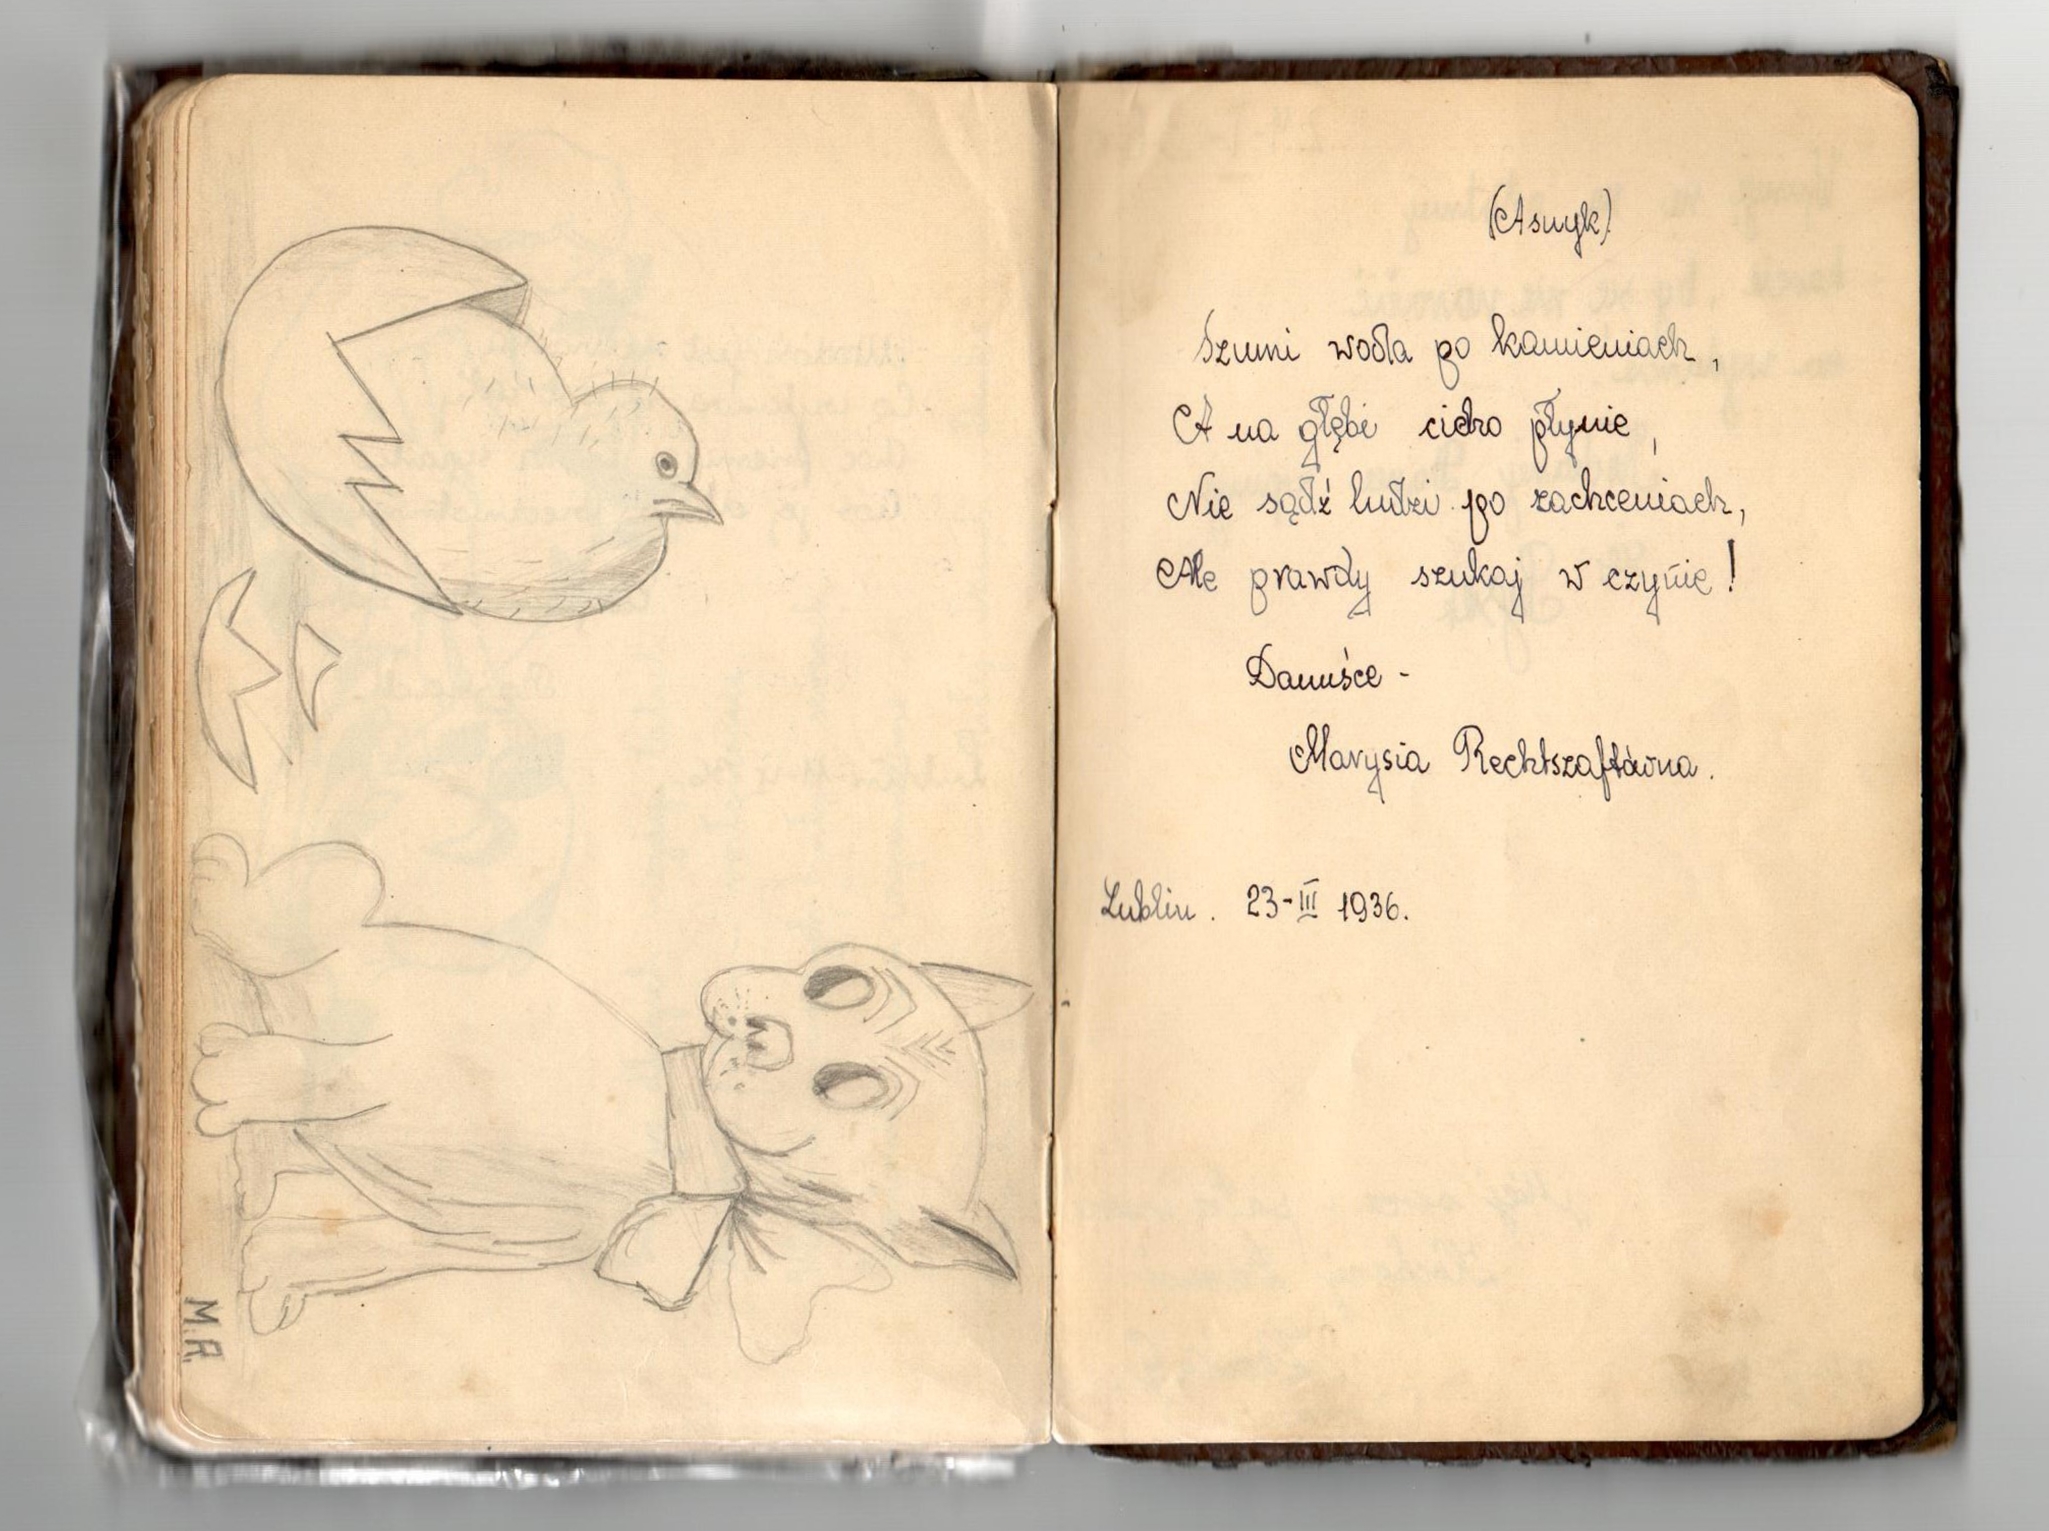 M.R.
(Asnyk)
Szumi woda po kamieniach,
A na głębi cicho płynie,
Nie sądź ludzi po zachceniach,
Ale prawdy szukaj w czynie!
Danuśce -
Marysia Rechtszaftówna.
Lublin. 23-III 1936.